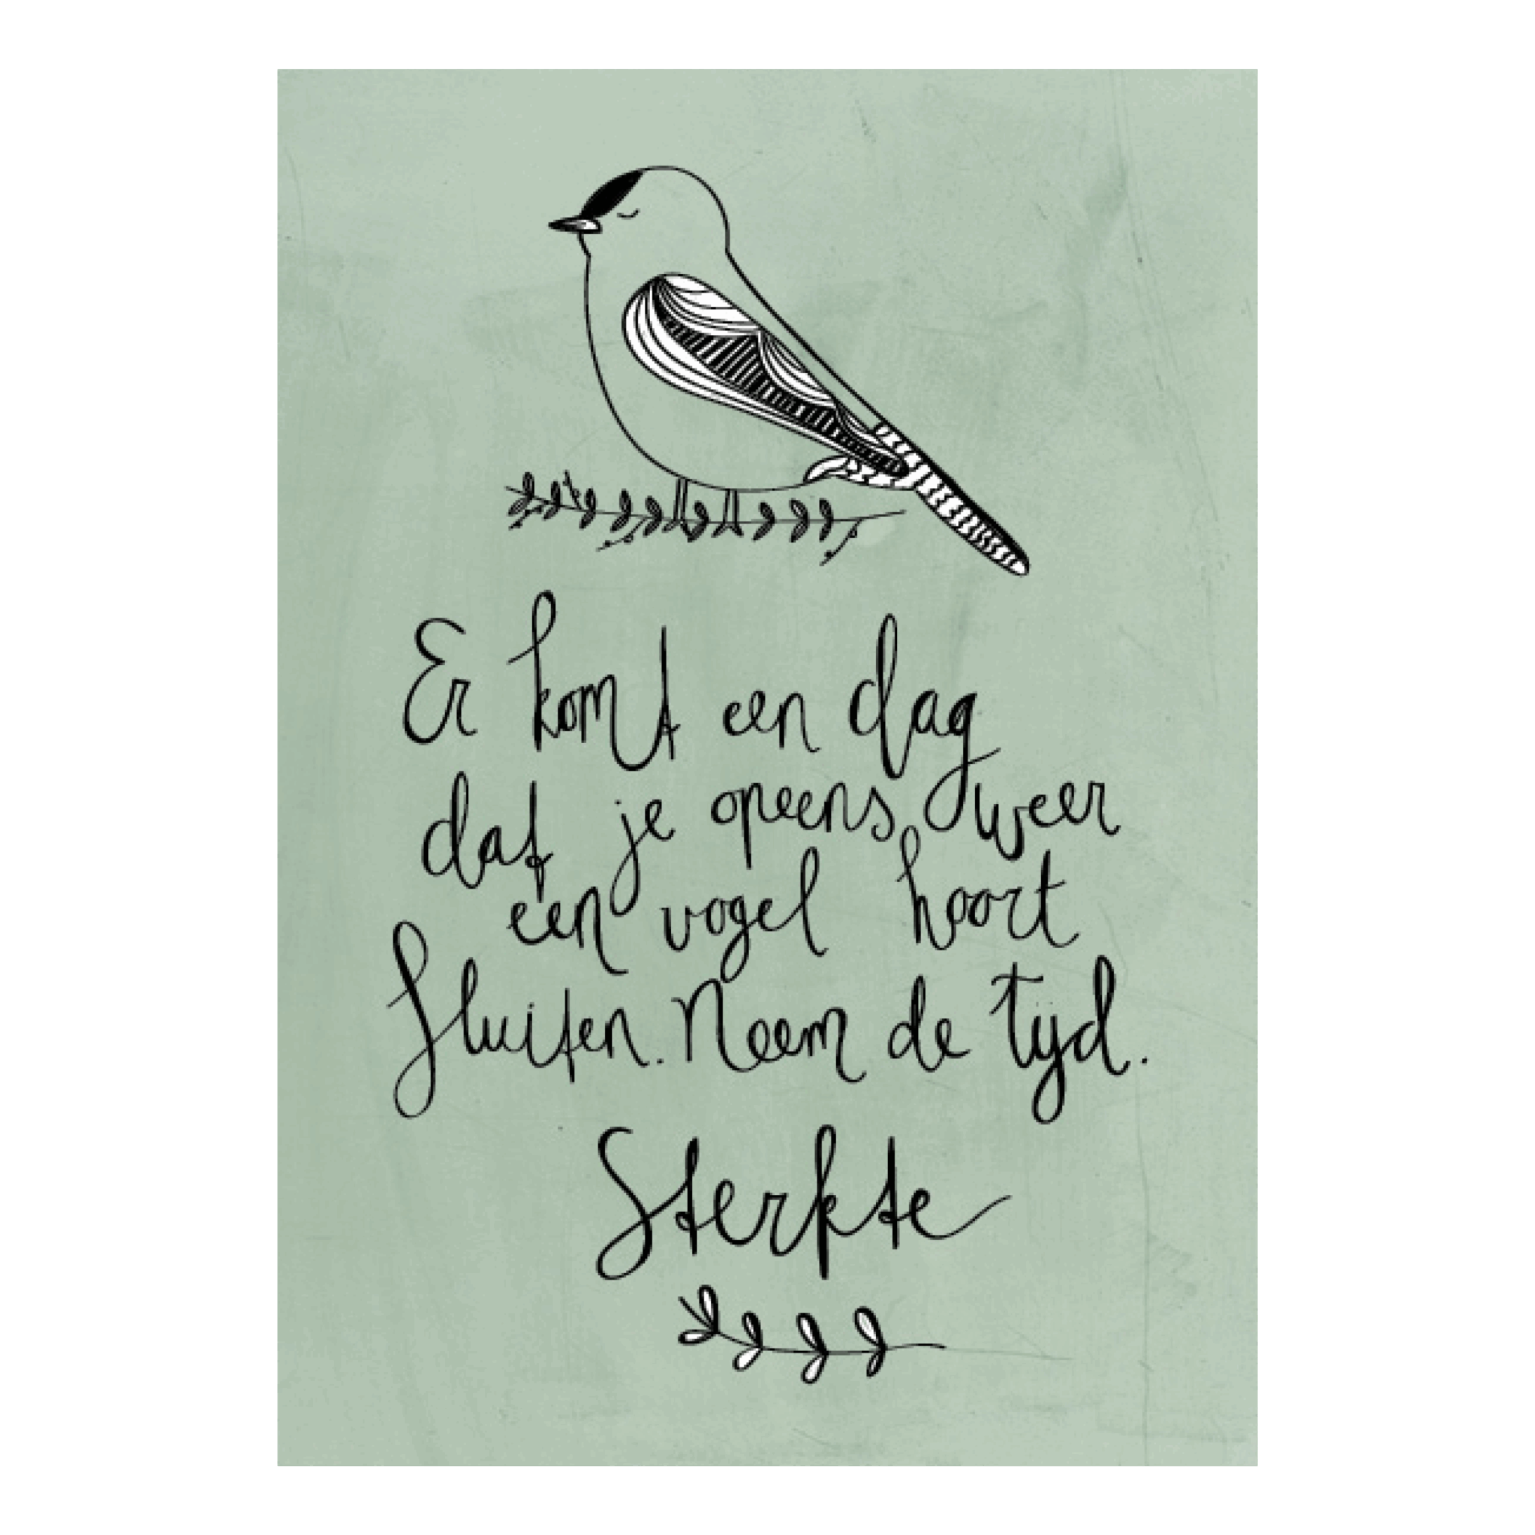 Er komt een dag
dat je opeens weer
een vogel hoort
fluiten. Neem de tijd.
Sterkte